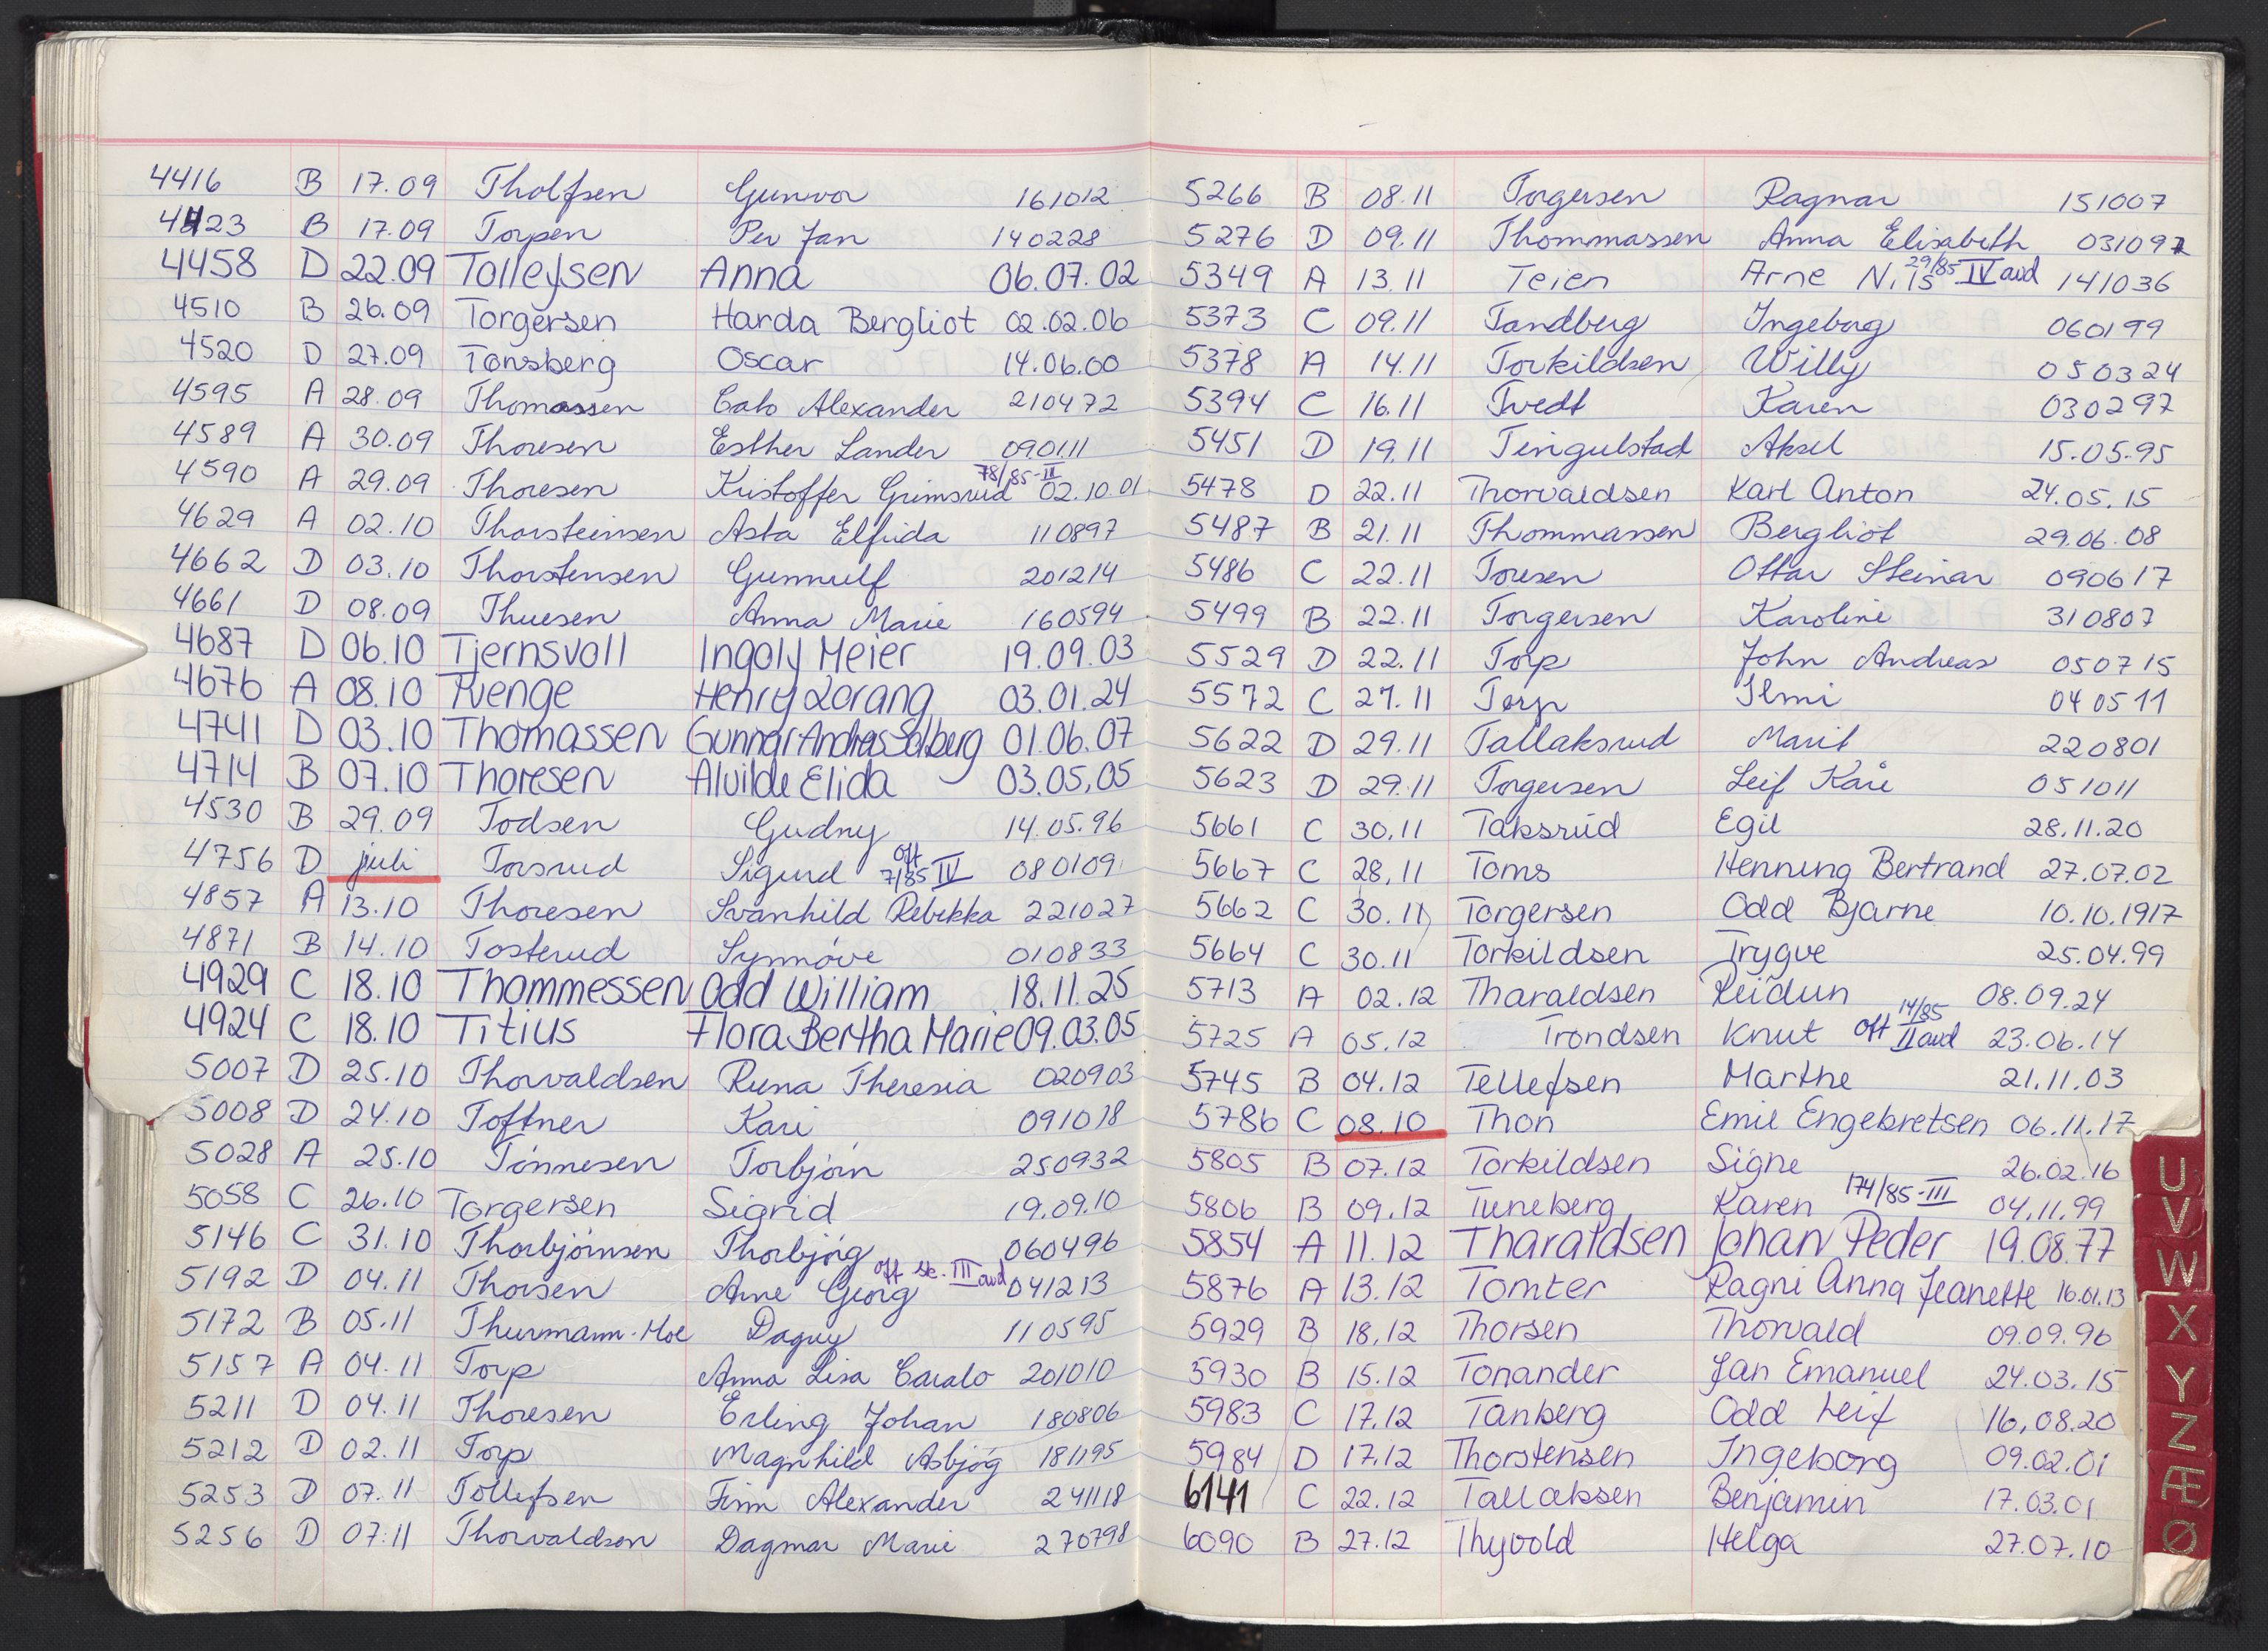 4416 B 17.09 Tholfsen Gunvor 161012
4423 B 17.09 Torpen Per Jan 140228
4458 D 22.09 Tollefsen Anna 06.07.02
4510 B 26.09 Torgersen Harda Bergliot 02.02.06
4520 D 27.09 Tønsberg Oscar 14.06.00
4595 A 28.09 Thomassen Cato Alexander 210472
4589 A 30.09 Thoresen Esther Lander 090111
78/85-II
4590 A 29.09 Thoresen Kristoffer Grimsrud 02.10.01
4629 A 02.10 Thorsteinsen Asta Elfrida 110897
4662 D 03.10 Thorstensen Gunnulf 201214
4661 D 08.09 Thuesen Anna Marie 160594
4687 D 06.10 Tjernsvoll Ingolf Meier 19.09.03
4676 A 08.10 Tvenge Henry Lorang 03.01.24
4741 D 03.10 Thomassen Gunnar Andreas Solberg 01.06.07
4714 B 07.10 Thoresen Alvilde Elida 03.05.05
4530 B 29.09 Todsen Gudny 14.05.96
4756 D juli Torsrud Sigurd off 7/85 IV 080109
4857 A 13.10 Thoresen Svanhild Rebekka 221027
4871 B 14.10 Tosterud Synnøve 010833
4929 C 18.10 Thommessen Odd William 18.11.25
4924 C 18.10 Titius Flora Bertha Marie 09.03.05
5007 D 25.10 Thorvaldsen Runa Theresia 020903
5008 D 24.10 Toftner Kari 091018
5028 A 25.10 Tønnesen Torbjørn 250932
5058 C 26.10 Torgersen Sigrid 19.09.10
5146 C 31.10 Thorbjørnsen Thorbjørg 060496
off sk. III avd
5192 D 04.11 Thorsen Arne Georg 041213
5172 B 05.11 Thurmann-Moe Dagny 110595
5157 A 04.11 Torp Anna Lisa 201010
5211 D 04.11 Thoresen Erling Johan 180806
5212 D 02.11 Torp Magnhild Asbjørg 181195
5253 D 07.11 Tollefsen Finn Alexander 241118
5256 D 07.11 Thorvaldsen Dagmar Marie 270798
5266 B 08.11 Torgersen Ragnar 151007
5276 D 09.11 Thommassen Anna Elisabeth 031097
5349 A 13.11 Teien Arne Nils 29/85 IV avd 141036
5373 C 09.11 Tandberg Ingeborg 060199
5378 A 14.11 Torkildsen Willy 050324
5394 C 16.11 Tvedt Karen 030297
5451 D 19.11 Tingulstad Aksel 15.05.95
5478 D 22.11 Thorvaldsen Karl Anton 24.05.15
5487 B 21.11 Thommassen Bergliot 29.06.08
5486 C 22.11 Toresen Ottar Steinar 090617
5499 B 22.11 Torgersen Karoline 310807
5529 D 22.11 Torp John Andreas 050715
5572 C 27.11 Torp Ilmi 040511
5622 D 29.11 Tallaksrud Marit 220801
5623 D 29.11 Torgersen Leif Kåre 051011
5661 C 30.11 Taksrud Egil 28.11.20
5667 C 28.11 Toms Henning Bertrand 27.07.02
5662 C 30.11 Torgersen Odd Bjarne 10.10.1917
5664 C 30.11 Torkildsen Trygve 25.04.99
5713 A 02.12 Tharaldsen Reidun 08.09.24
5725 A 05.12 Trondsen Knut off 14/85 II avd 23.06.14
5745 B 04.12 Tellefsen Marthe 21.11.03
5786 C 08.10 Thon Emil Engebretsen 06.11.17
5805 B 07.12 Torkildsen Signe 26.02.16
5806 B 09.12 Tuneberg Karen 174/85-III 04.11.99
5854 A 11.12 Tharaldsen Johan Peder 19.08.77
5876 A 13.12 Tomter Ragni Anna Jeanette 16.01.13
5929 B 18.12 Thorsen Thorvald 09.09.96
5930 B 15.12 Tonander Jan Emanuel 24.03.15
5983 C 17.12 Tanberg Odd Leif 16.08.20
5984 D 17.12 Thorstensen Ingeborg 09.02.01
6141 C 22.12 Tallaksen Benjamin 17.03.01
6090 B 27.12 Thyvold Helga 27.07.10
U
V
W
X
Y
Z
Æ
Ø